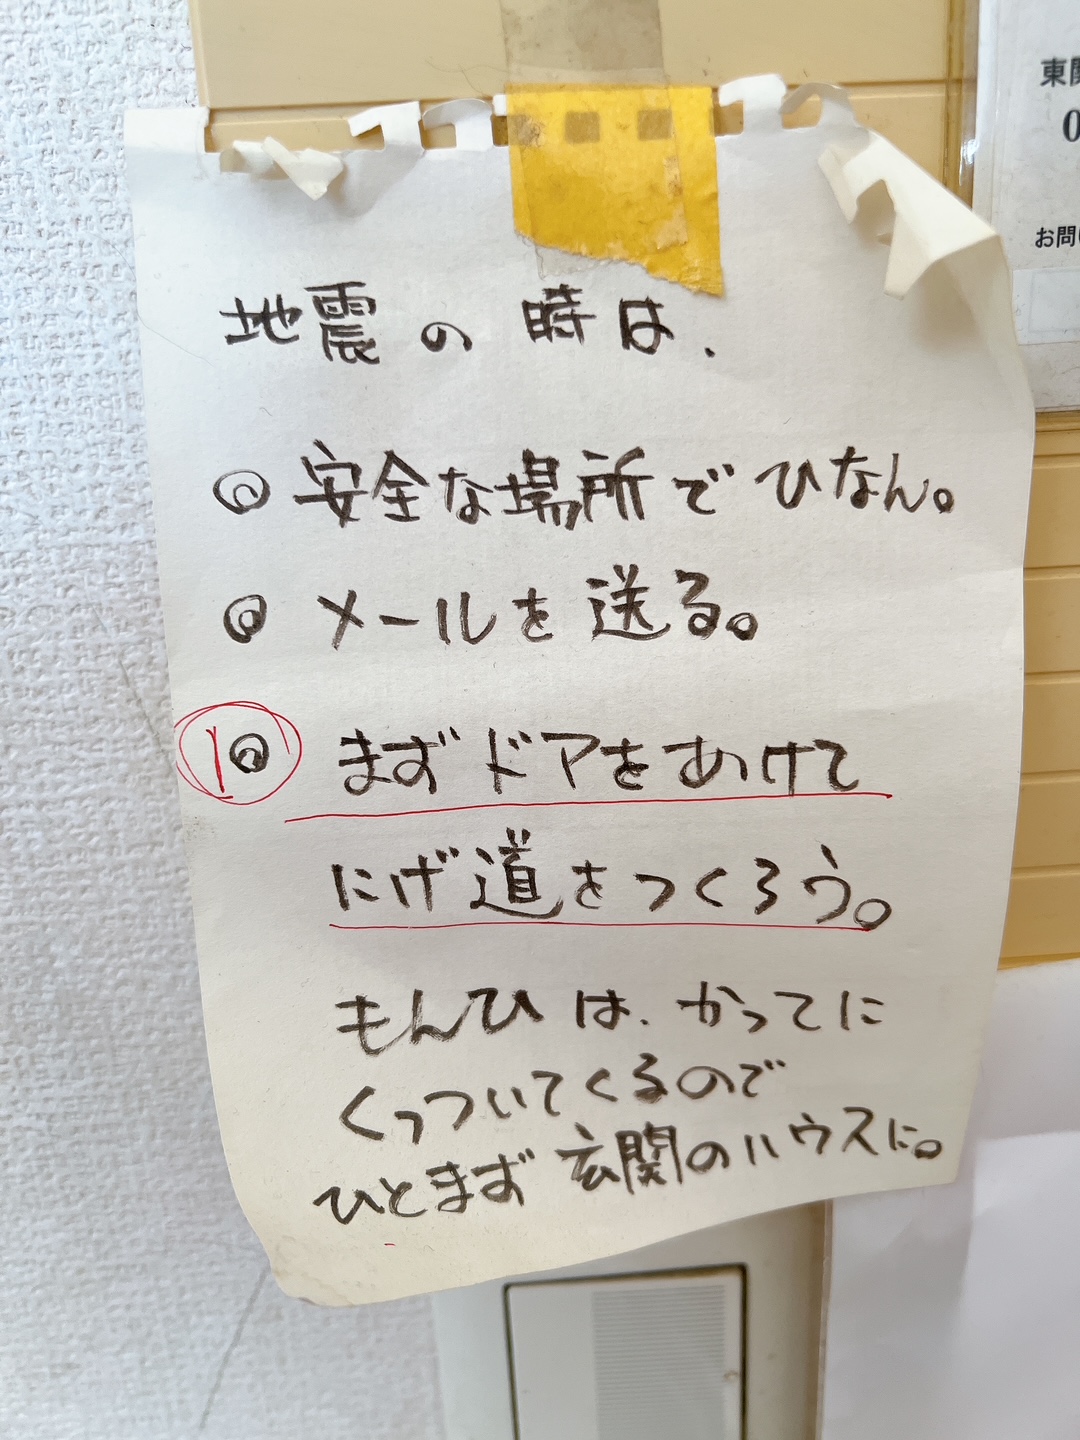 地震の時は、
◎ 安全な場所でひなん。
◎ メールを送る。
1◎ まずドアをあけて
にげ道をつくろう。
もんひは、かってに
くっついてくるので
ひとまず玄関のハウスに。
東関
0
お問い